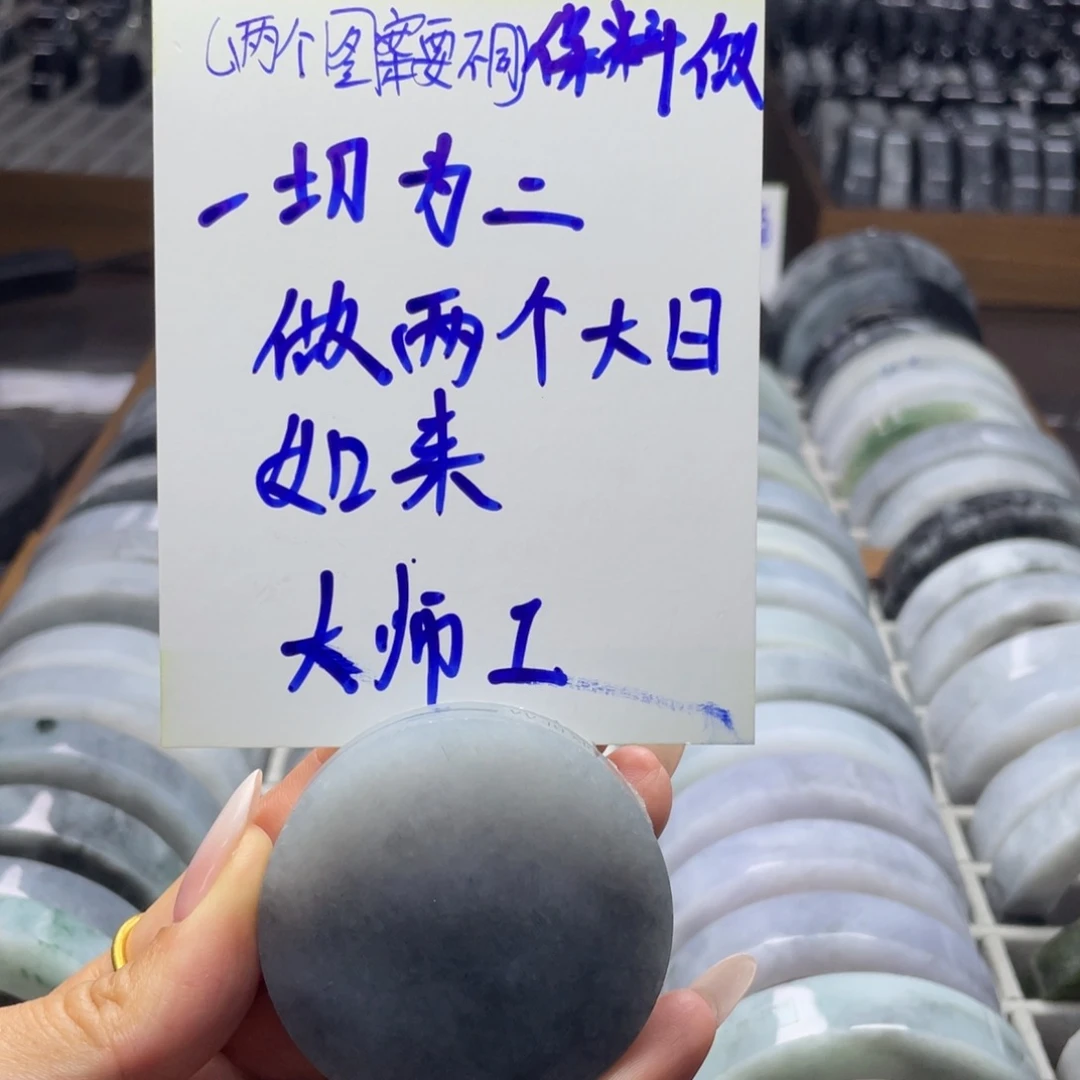 (两个图案要不同)保料做
一切为二
做两个大日
如来
大师工